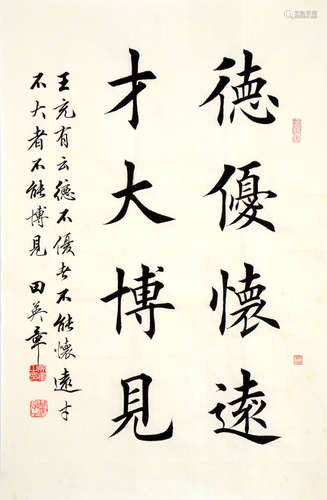 德優懷遠
才大博見
王充有云德不優者不能懷遠才
不大者不能博見 田英章